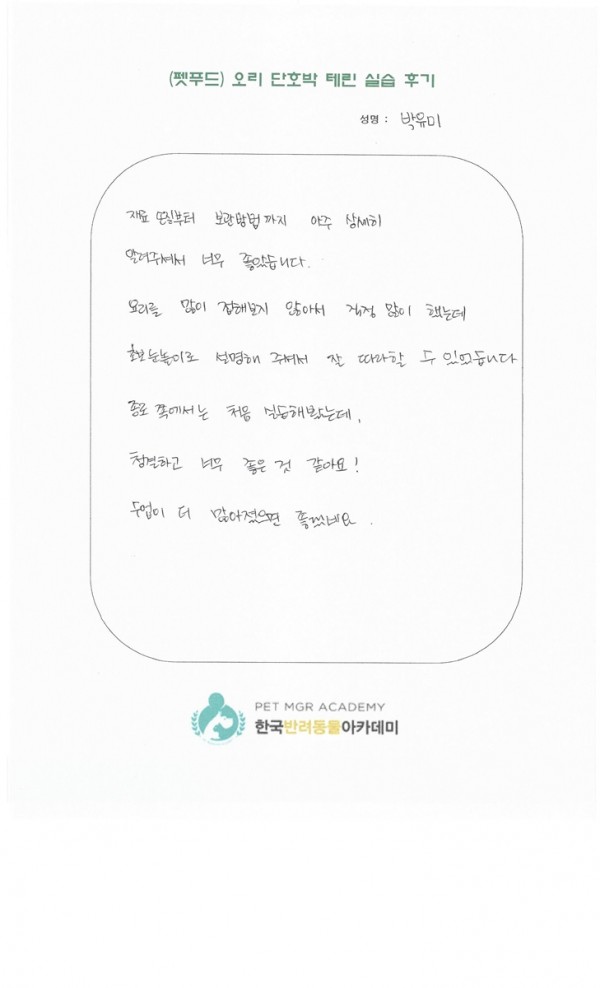 (펫푸드) 오리 단호박 테린 실습 후기
성명 : 박유미
재료 손질부터 보관방법까지 아주 상세히
알려주셔서 너무 좋았습니다.
요리를 많이 접해보지 않아서 걱정 많이 했는데
초보눈높이로 설명해 주셔서 잘 따라할 수 있었습니다
종로 쪽에서는 처음 실습해봤는데,
청결하고 너무 좋은 것 같아요!
수업이 더 많아졌으면 좋겠네요.
PET MGR ACADEMY
한국반려동물아카데미